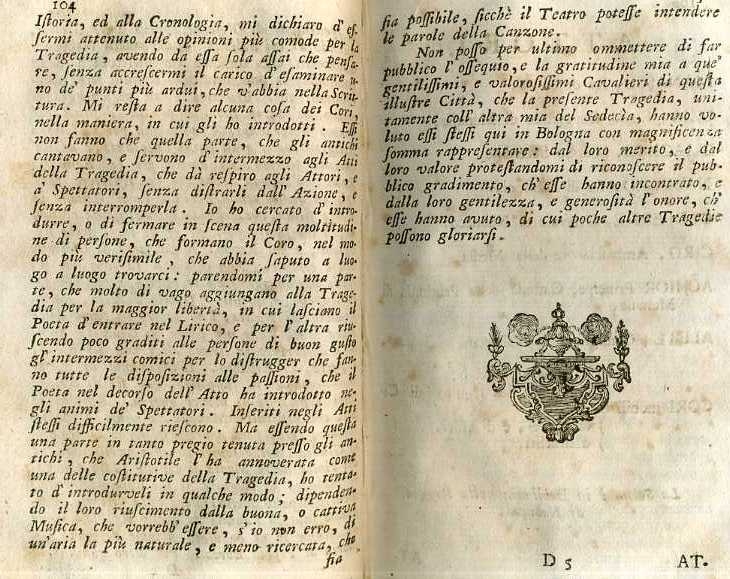 104
Istoria, ed alla Cronologia, mi dichiaro d'es-
sermi attenuto alle opinioni più comode per la
Tragedia, avendo da essa sola assai che pensa-
re, senza accrescermi il carico d'esaminare u-
no de' punti più ardui, che v'abbia nella Scrit-
tura. Mi resta a dire alcuna cosa dei Cori,
nella maniera, in cui gli ho introdotti. Essi
non fanno che quella parte, che gli antichi
cantavano, e servono d'intermezzo agli Atti
della Tragedia, che dà respiro agli Attori, e
a' Spettatori, senza distrarli dall' Azione, e
senza interromperla. Io ho cercato d'intro-
durre, o di fermare in scena questa moltitudi-
ne di persone, che formano il Coro, nel mo-
do più verisimile, che abbia saputo a luo-
go a luogo trovarci: parendomi per una par-
te, che molto di vago aggiungano alla Trage-
dia per la maggior libertà, in cui lasciano il
Poeta d'entrare nel Lirico, e per l'altra riu-
scendo poco graditi alle persone di buon gusto
gl'intermezzi comici per lo distrugger che fan-
no tutte le disposizioni alle passioni, che il
Poeta nel decorso dell' Atto ha introdotto ne-
gli animi de' Spettatori. Inseriti negli Atti
stessi difficilmente riescono. Ma essendo questa
una parte in tanto pregio tenuta presso gli an-
tichi, che Aristotile l'ha annoverata come
una delle costitutive della Tragedia, ho tenta-
to d'introdurveli in qualche modo; dipenden-
do il loro riuscimento dalla buona, o cattiva
Musica, che vorrebb'essere, s'io non erro, di
un'aria la più naturale, e meno ricercata, che
sia
sia possibile, sicchè il Teatro potesse intendere
le parole della Canzone.
Non posso per ultimo ommettere di far
pubblico l'ossequio, e la gratitudine mia a que'
gentilissimi, e valorosissimi Cavalieri di questa
illustre Città, che la presente Tragedia, uni-
tamente coll' altra mia del Sedecìa, hanno vo-
luto essi stessi qui in Bologna con magnificenza
somma rappresentare: dal loro merito, e dal
loro valore protestandomi di riconoscere il pub-
blico gradimento, ch'esse hanno incontrato, e
dalla loro gentilezza, e generosità l'onore, ch'
esse hanno avuto, di cui poche altre Tragedie
possono gloriarsi.
D 5 AT-